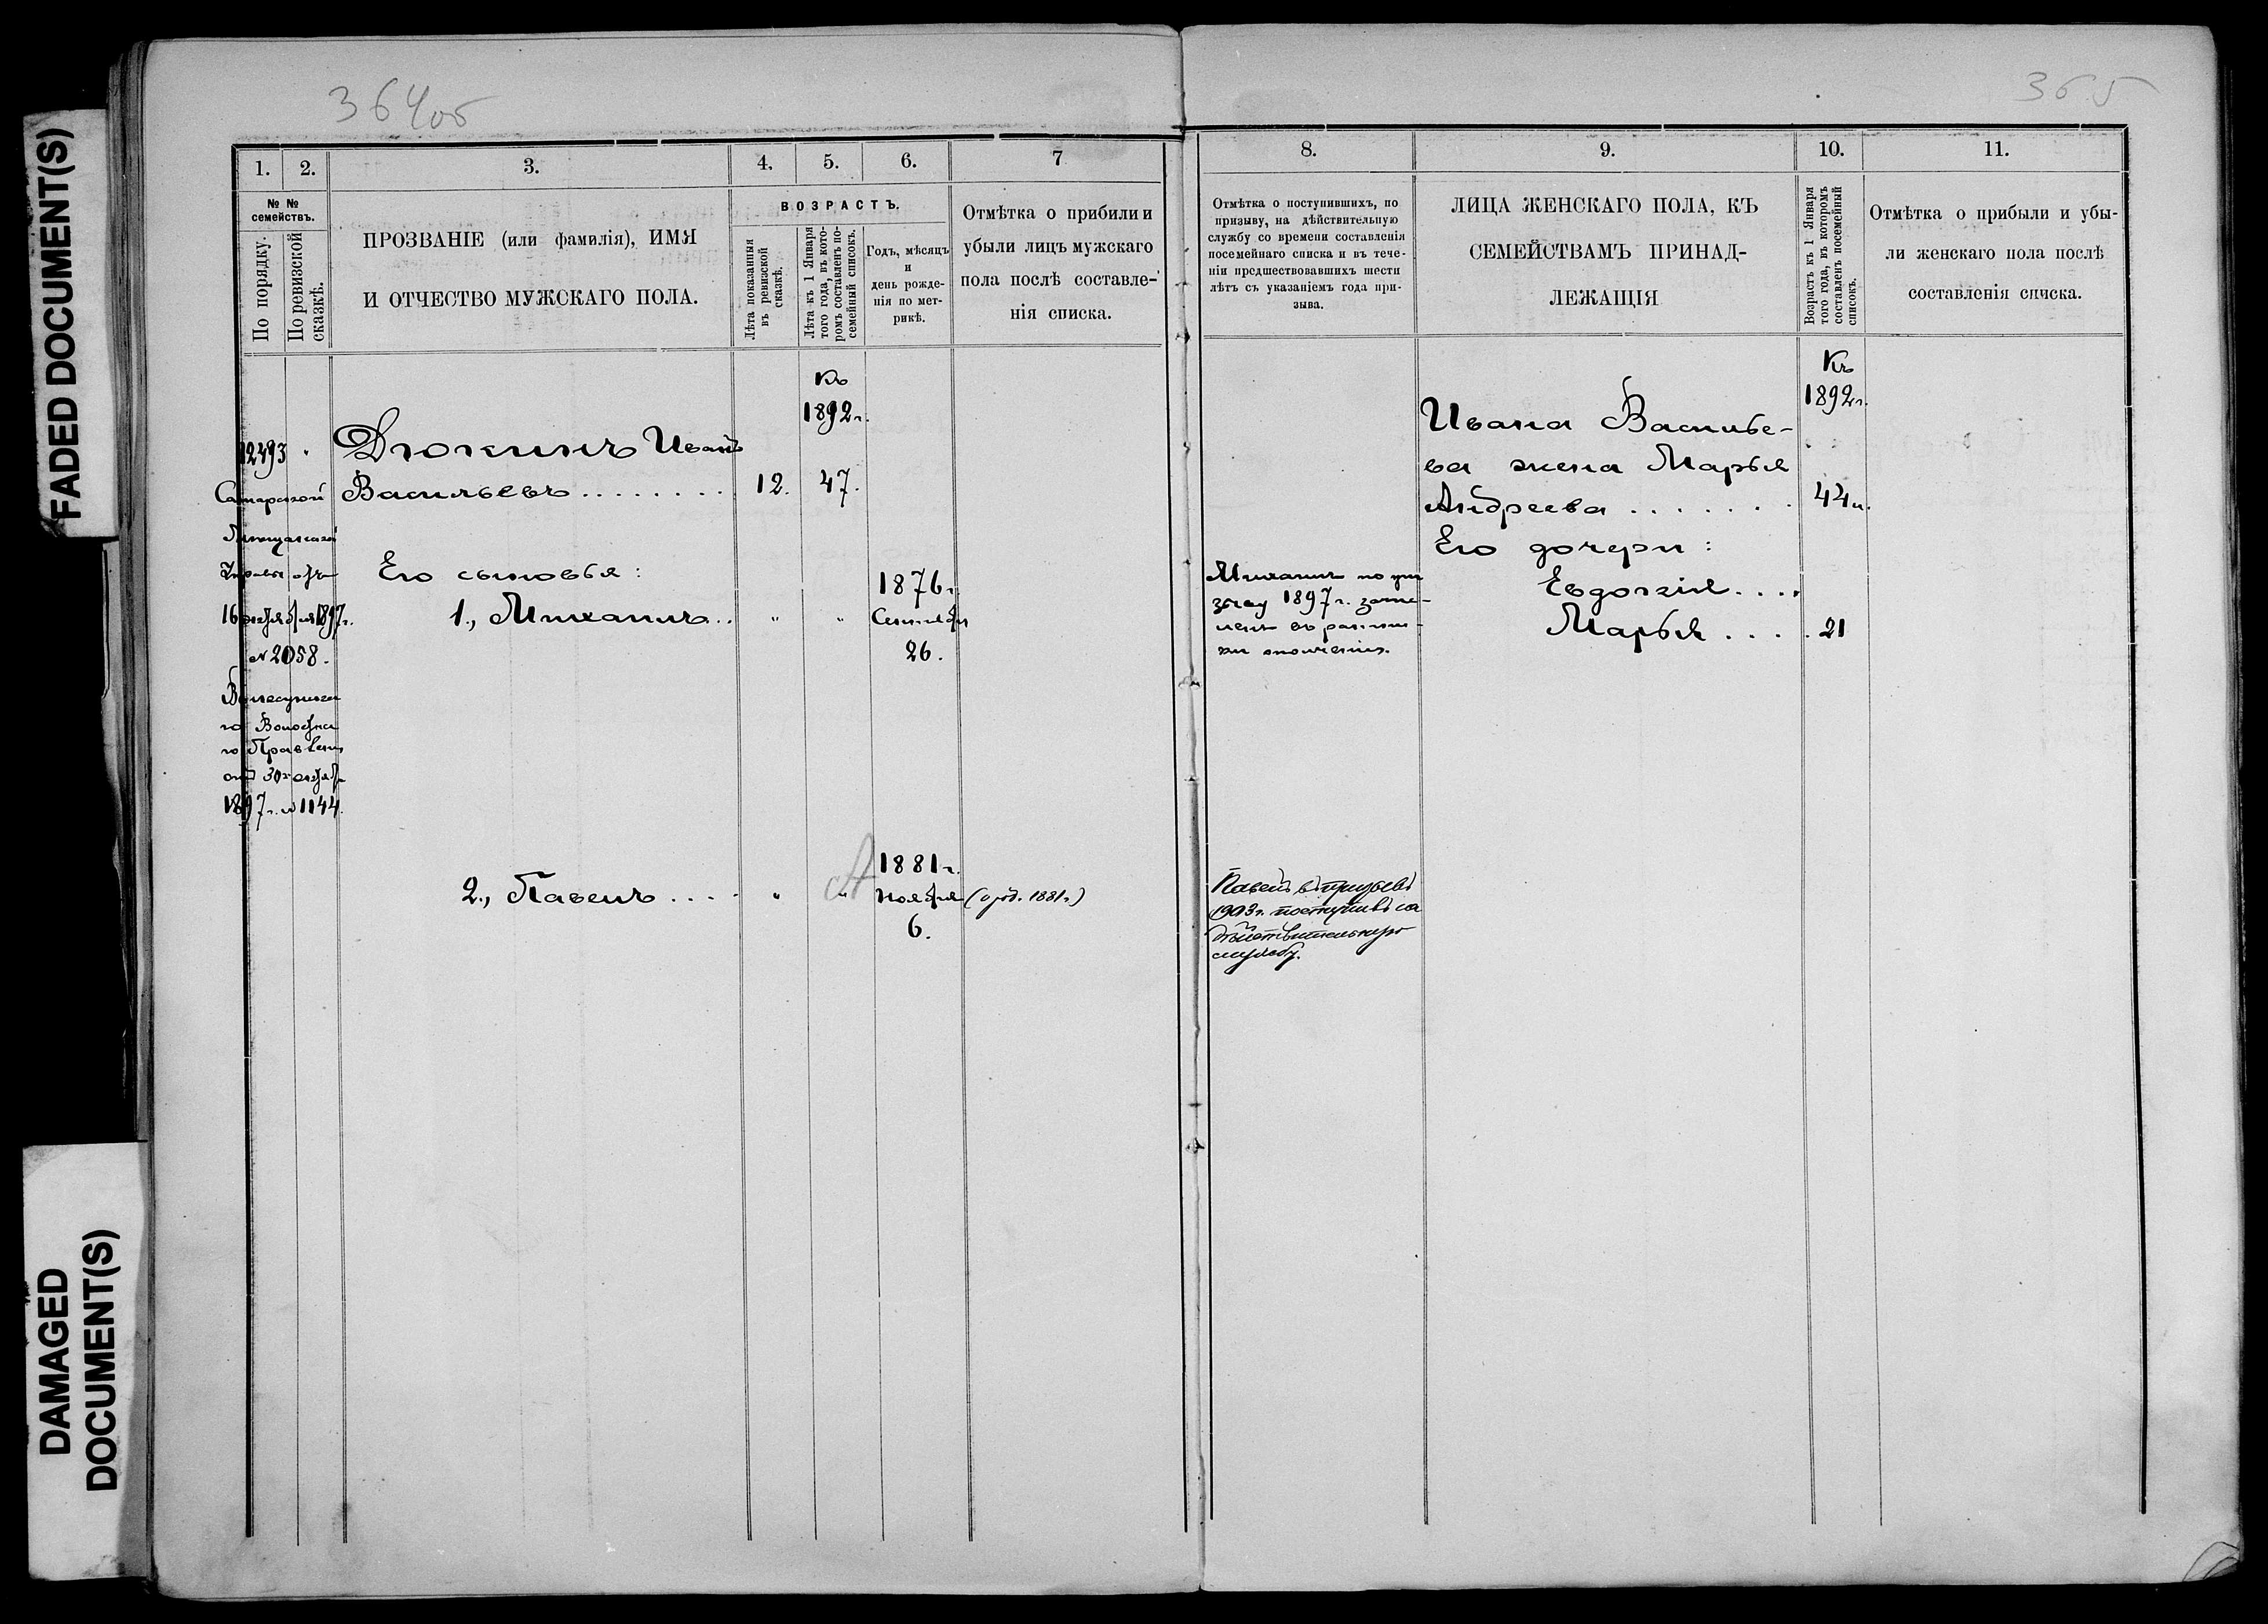 FADED DOCUMENT(S)
DAMAGED
DOCUMENT(S)
364об
1. 2. 3. 4. 5. 6. 7
№ №
семействъ.
По порядку.
По ревизской
сказкѣ.
ПРОЗВАНІЕ (или фамилія), ИМЯ
И ОТЧЕСТВО МУЖСКАГО ПОЛА.
ВОЗРАСТЪ.
Лѣта показанныя
въ ревизской
сказкѣ.
Лѣта къ 1 Января
того года, въ кото-
ромъ составленъ по-
семейный списокъ.
Годъ, мѣсяцъ
и
день рожде-
нія по мет-
рикѣ.
Отмѣтка о прибили и
убыли лицъ мужскаго
пола послѣ составле-
нія списка.
12493 "
Самарской
Мѣщанской
Управы отъ
16 октября 1897г.
№ 2058.
Волостна
го Правленія
отъ 30 октяб.
1897г. № 1144.
Дюкинъ Иванъ
Васильевъ . . . . . . . . 12. 47.
Къ
1892г.
Его сыновья:
1., Михаилъ . . " "
1876г.
Сентября
26.
2., Павелъ . . . . " "
1881г.
Ноября
6.
(о род. 1881г)
365
8. 9. 10. 11.
Отмѣтка о поступившихъ, по
призыву, на дѣйствительную
службу со времени составленія
посемейнаго списка и въ тече-
ніи предшествовавшихъ шести
лѣтъ съ указаніемъ года при-
зыва.
ЛИЦА ЖЕНСКАГО ПОЛА, КЪ
СЕМЕЙСТВАМЪ ПРИНАД-
ЛЕЖАЩІЯ
Возрастъ къ 1 Января
того года, въ которомъ
составленъ посемейный
списокъ.
Отмѣтка о прибыли и убы-
ли женскаго пола послѣ
составленія списка.
Михаилъ по при
зыву 1897г. зачи-
сленъ въ ратни-
ки ополченія.
Павелъ въ призывъ
1903г. поступивъ на
дѣйствительную
службу.
Къ
1892г.
Ивана Василье-
ва жена Марья
Андреева . . . . . . . 44
Его дочери:
Евдокія . . . .
Марья . . . . 21